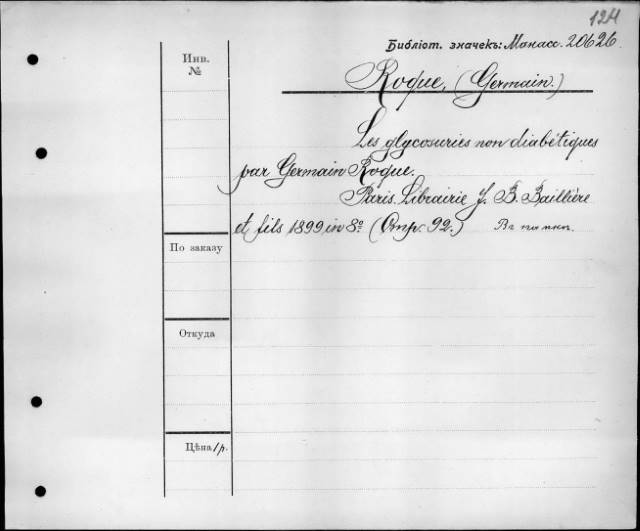 124
Библіот. значекъ: Манасс. 20626.
Инв.
№
Roque, (Germain.)
Les glycosuries non diabétiques
par Germain Roque.
Paris. Librairie J. B. Baillière
et fils 1899 in 8º. (Стр. 92.) Въ папкѣ.
По заказу
Откуда
Цѣна/р.